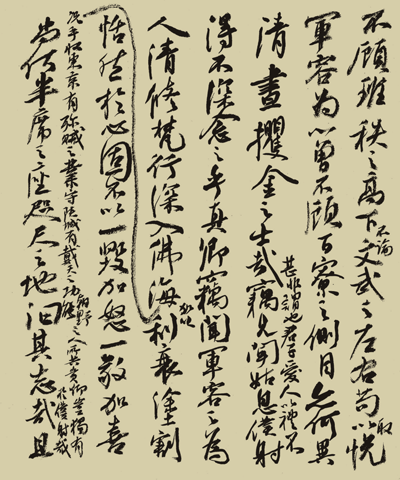 不顧班秩之高下不論文武之左右苟以取悅
軍容為心曾不顧百寮之側目亦何異
清晝攫金之士哉甚非謂也君子愛人以禮不竊見聞姑息僕射
得不深念之乎真卿竊聞軍容之為
人清修梵行深入佛海加以利衰塗割
恬然於心固不以一毀加怒一敬加喜
況乎收東京有殄賊之業守陝城有戴天之功朝野之人所共貴仰豈獨有分於僕射哉
尚何半席之座咫尺之地能汩其志哉且